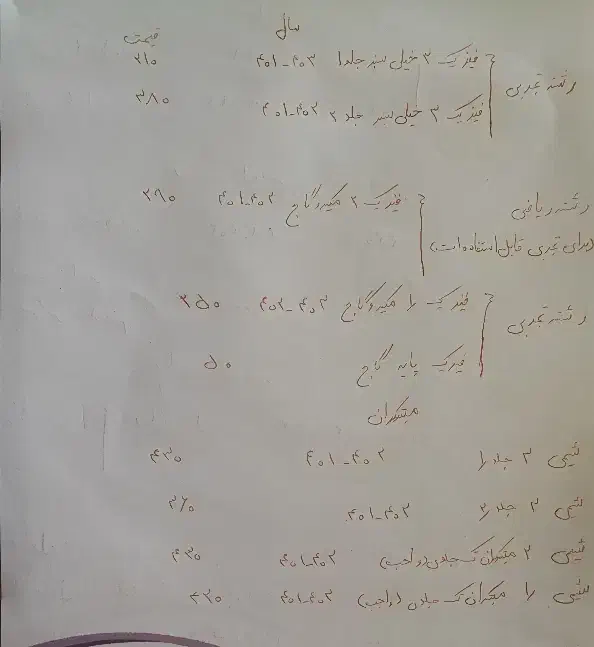 سال
قیمت
رشته تجربی
فیزیک ۳ خیلی سبز جلد ۱ ۴۰۳-۴۰۱ ۳۱۰
فیزیک ۳ خیلی سبز جلد ۲ ۴۰۳-۴۰۱ ۳۸۰
رشته ریاضی
(برای تجربی قابل استفاده است)
فیزیک ۲ میکرو گاج ۴۰۳-۴۰۱ ۳۹۰
رشته تجربی
فیزیک ۱ میکرو گاج ۴۰۳-۴۰۱ ۳۵۰
فیزیک پایه گاج ۵۰
مبتکران
شیمی ۳ جلد ۱ ۴۰۳-۴۰۱ ۴۳۰
شیمی ۳ جلد ۲ ۴۰۳-۴۰۱
شیمی ۲ مبتکران تک جلدی ۴۰۳-۴۰۱ ۴۳۰
شیمی ۱ مبتکران تک جلدی ۴۰۳-۴۰۱ ۴۳۰